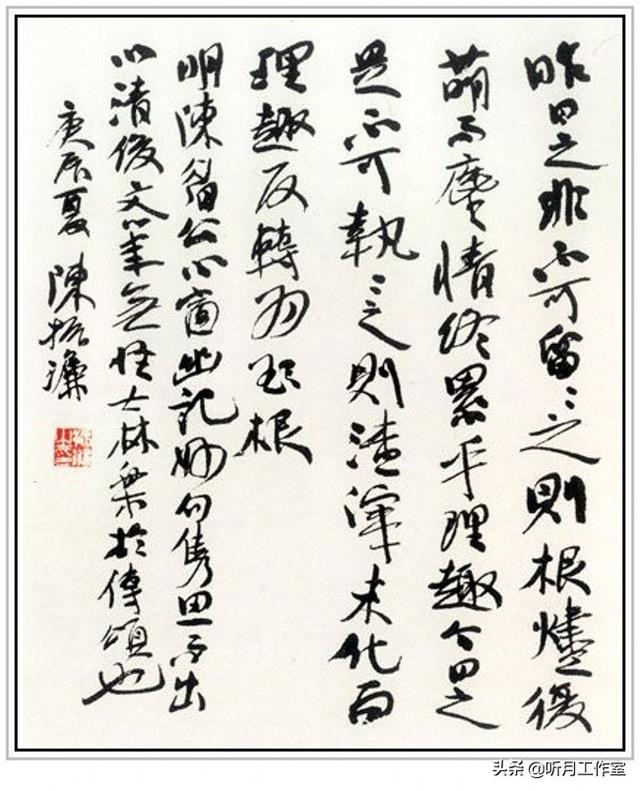 昨日之非不可留〻之則根燼復
萌而塵情終累乎理趣今日之
是不可執〻之則渣滓未化而
理趣反轉為欲根
明陳眉公小窗幽記妙句雋思而出
以清俊文筆無怪士林樂於傳頌也
庚辰夏 陳振濂
头条 @听月工作室